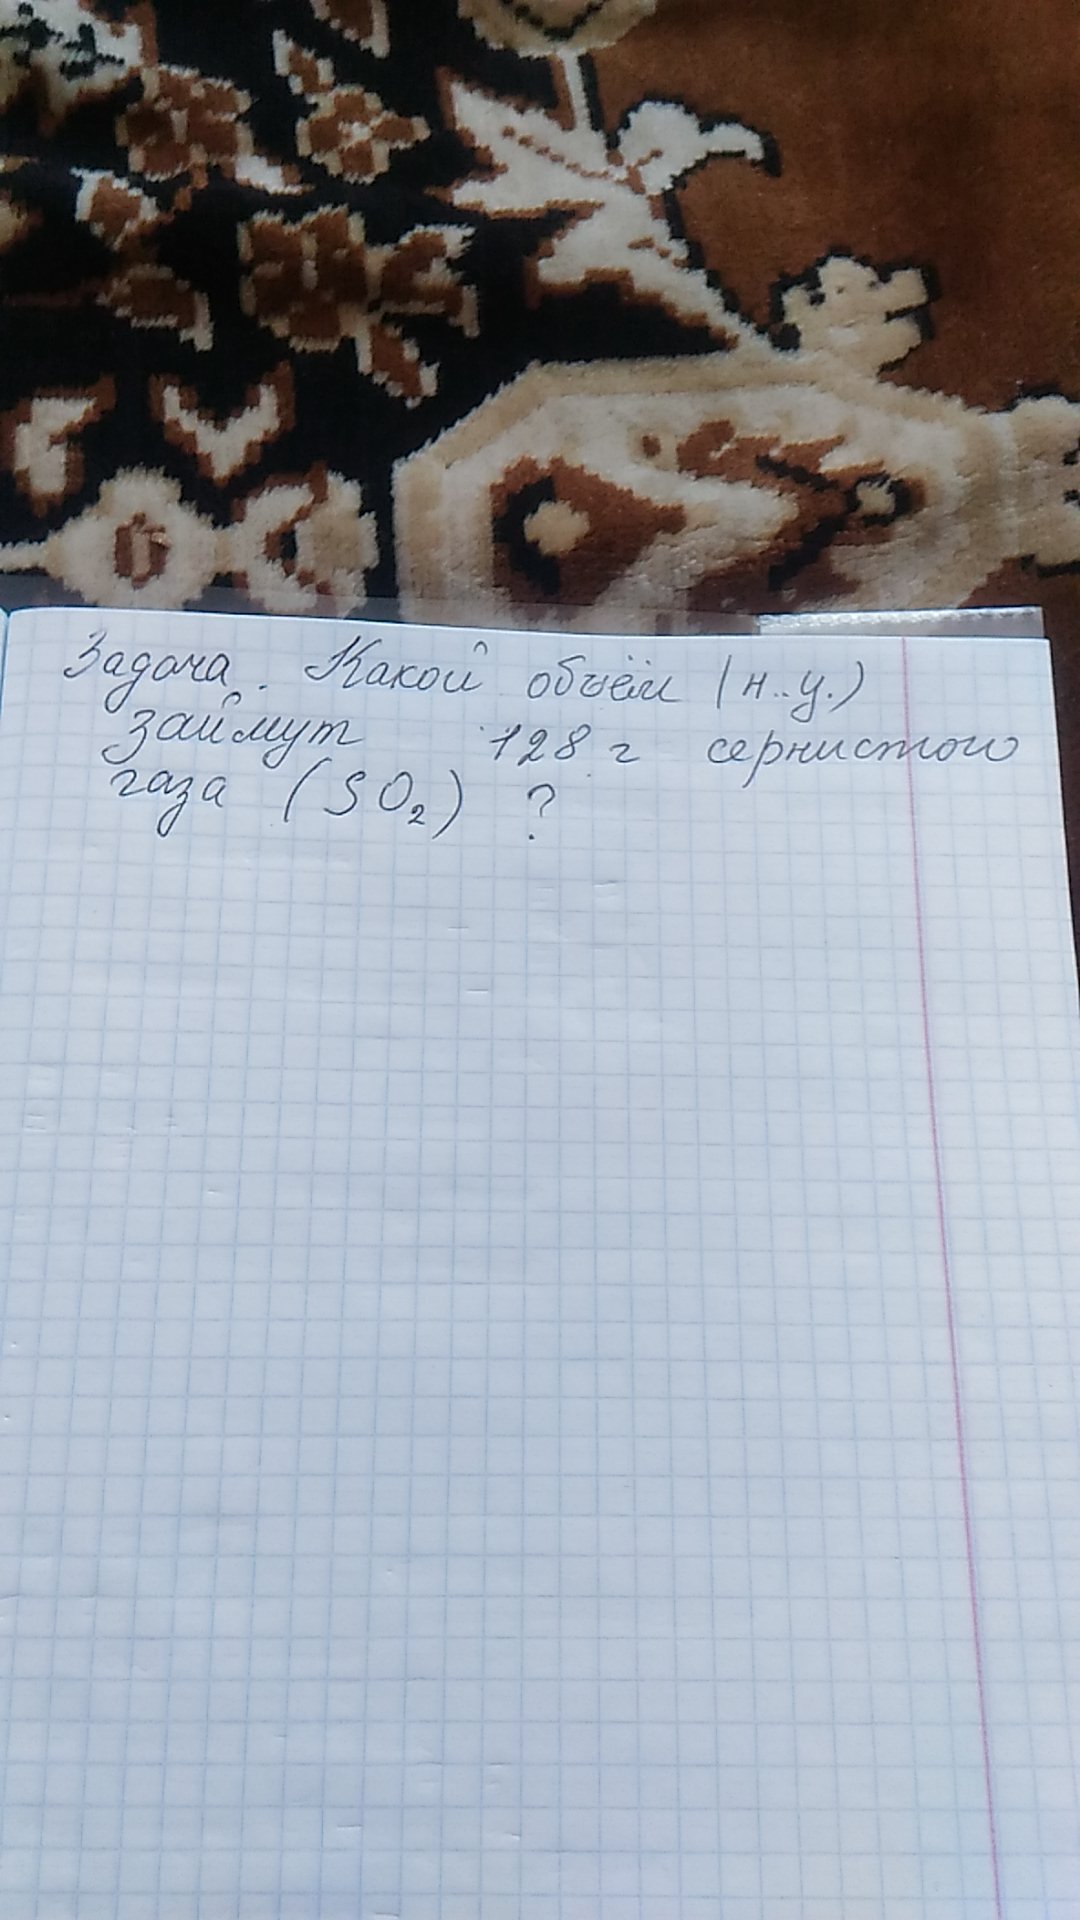 Задача. Какой объём (н.у.)
займут 128 г сернистого
газа (SO₂) ?